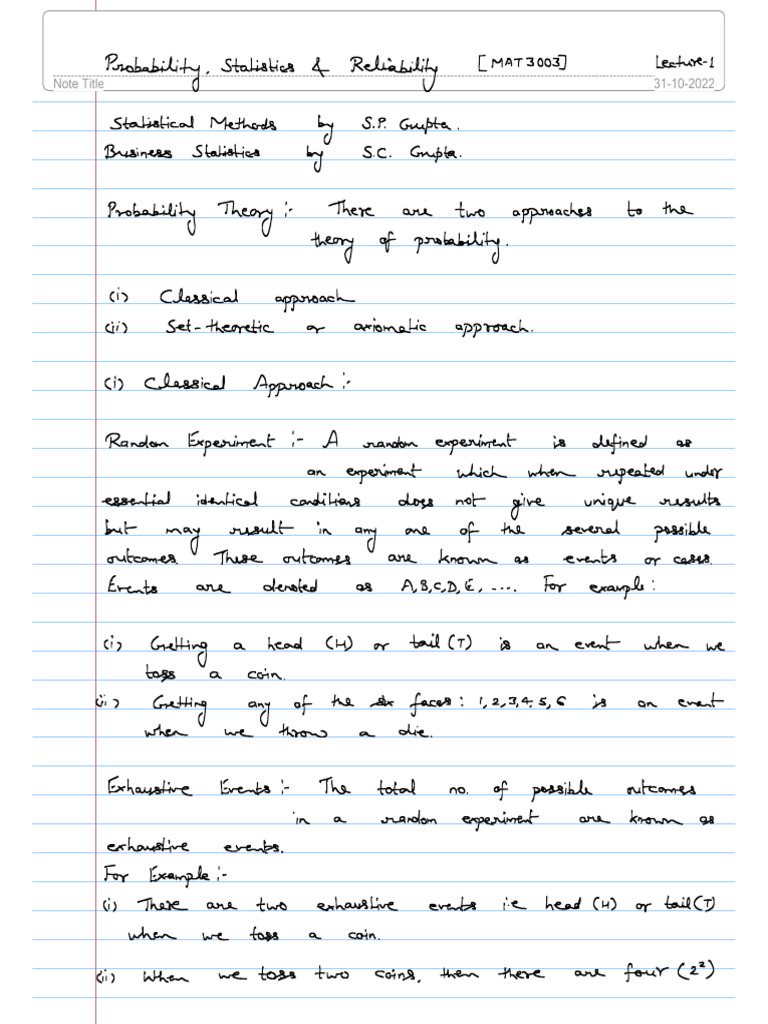 Probability, Statistics & Reliability [MAT3003] Lecture-1
Note Title 31-10-2022
Statistical Methods by S.P. Gupta.
Business Statistics by S.C. Gupta.
Probability Theory :- There are two approaches to the
theory of probability.
(i) Classical approach
(ii) Set-theoretic or axiomatic approach.
(i) Classical Approach :-
Random Experiment :- A random experiment is defined as
an experiment which when repeated under
essential identical conditions does not give unique results
but may result in any one of the several possible
outcomes. These outcomes are known as events or cases.
Events are denoted as A,B,C,D,E, .... For example :
(i) Getting a head (H) or tail (T) is an event when we
toss a coin.
(ii) Getting any of the six faces : 1,2,3,4,5,6 is an event
when we throw a die.
Exhaustive Events :- The total no. of possible outcomes
in a random experiment are known as
exhaustive events.
For Example :-
(i) There are two exhaustive events i.e head (H) or tail(T)
when we toss a coin.
(ii) When we toss two coins, then there are four (2²)